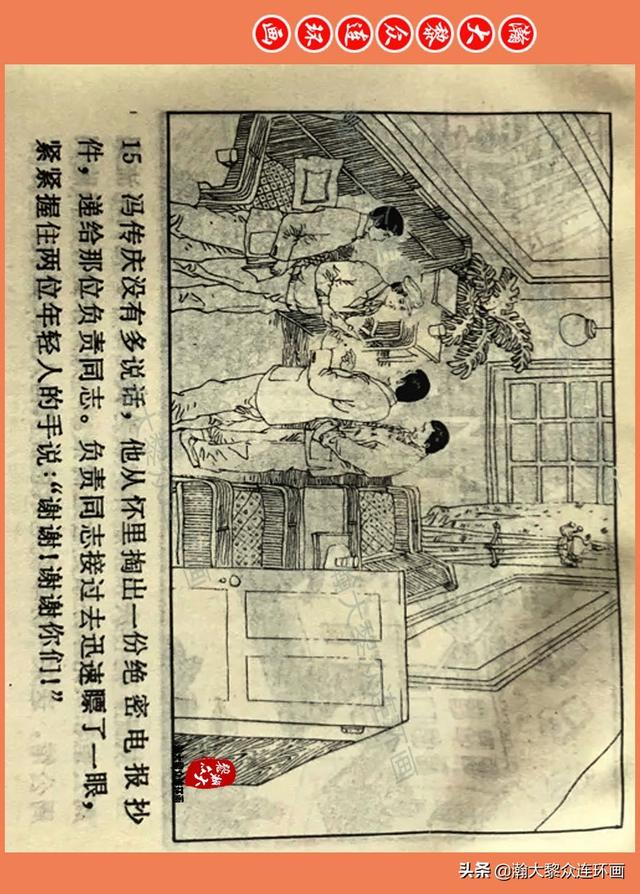 瀚大黎众连环画
15 冯传庆没有多说话，他从怀里掏出一份绝密电报抄
件，递给那位负责同志。负责同志接过去迅速瞟了一眼，
紧紧握住两位年轻人的手说：“谢谢！谢谢你们！”
头条 @瀚大黎众连环画